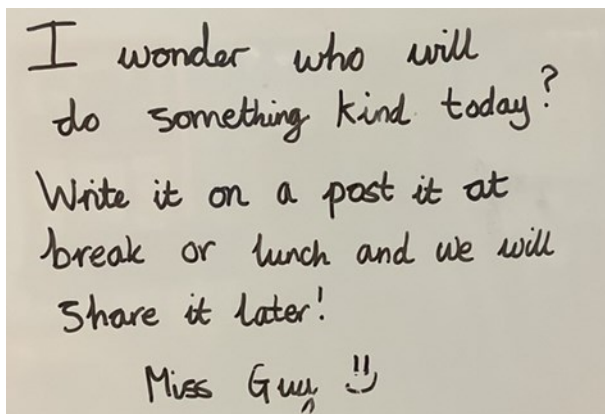 I wonder who will
do something kind today?
Write it on a post it at
break or lunch and we will
share it later!
Miss